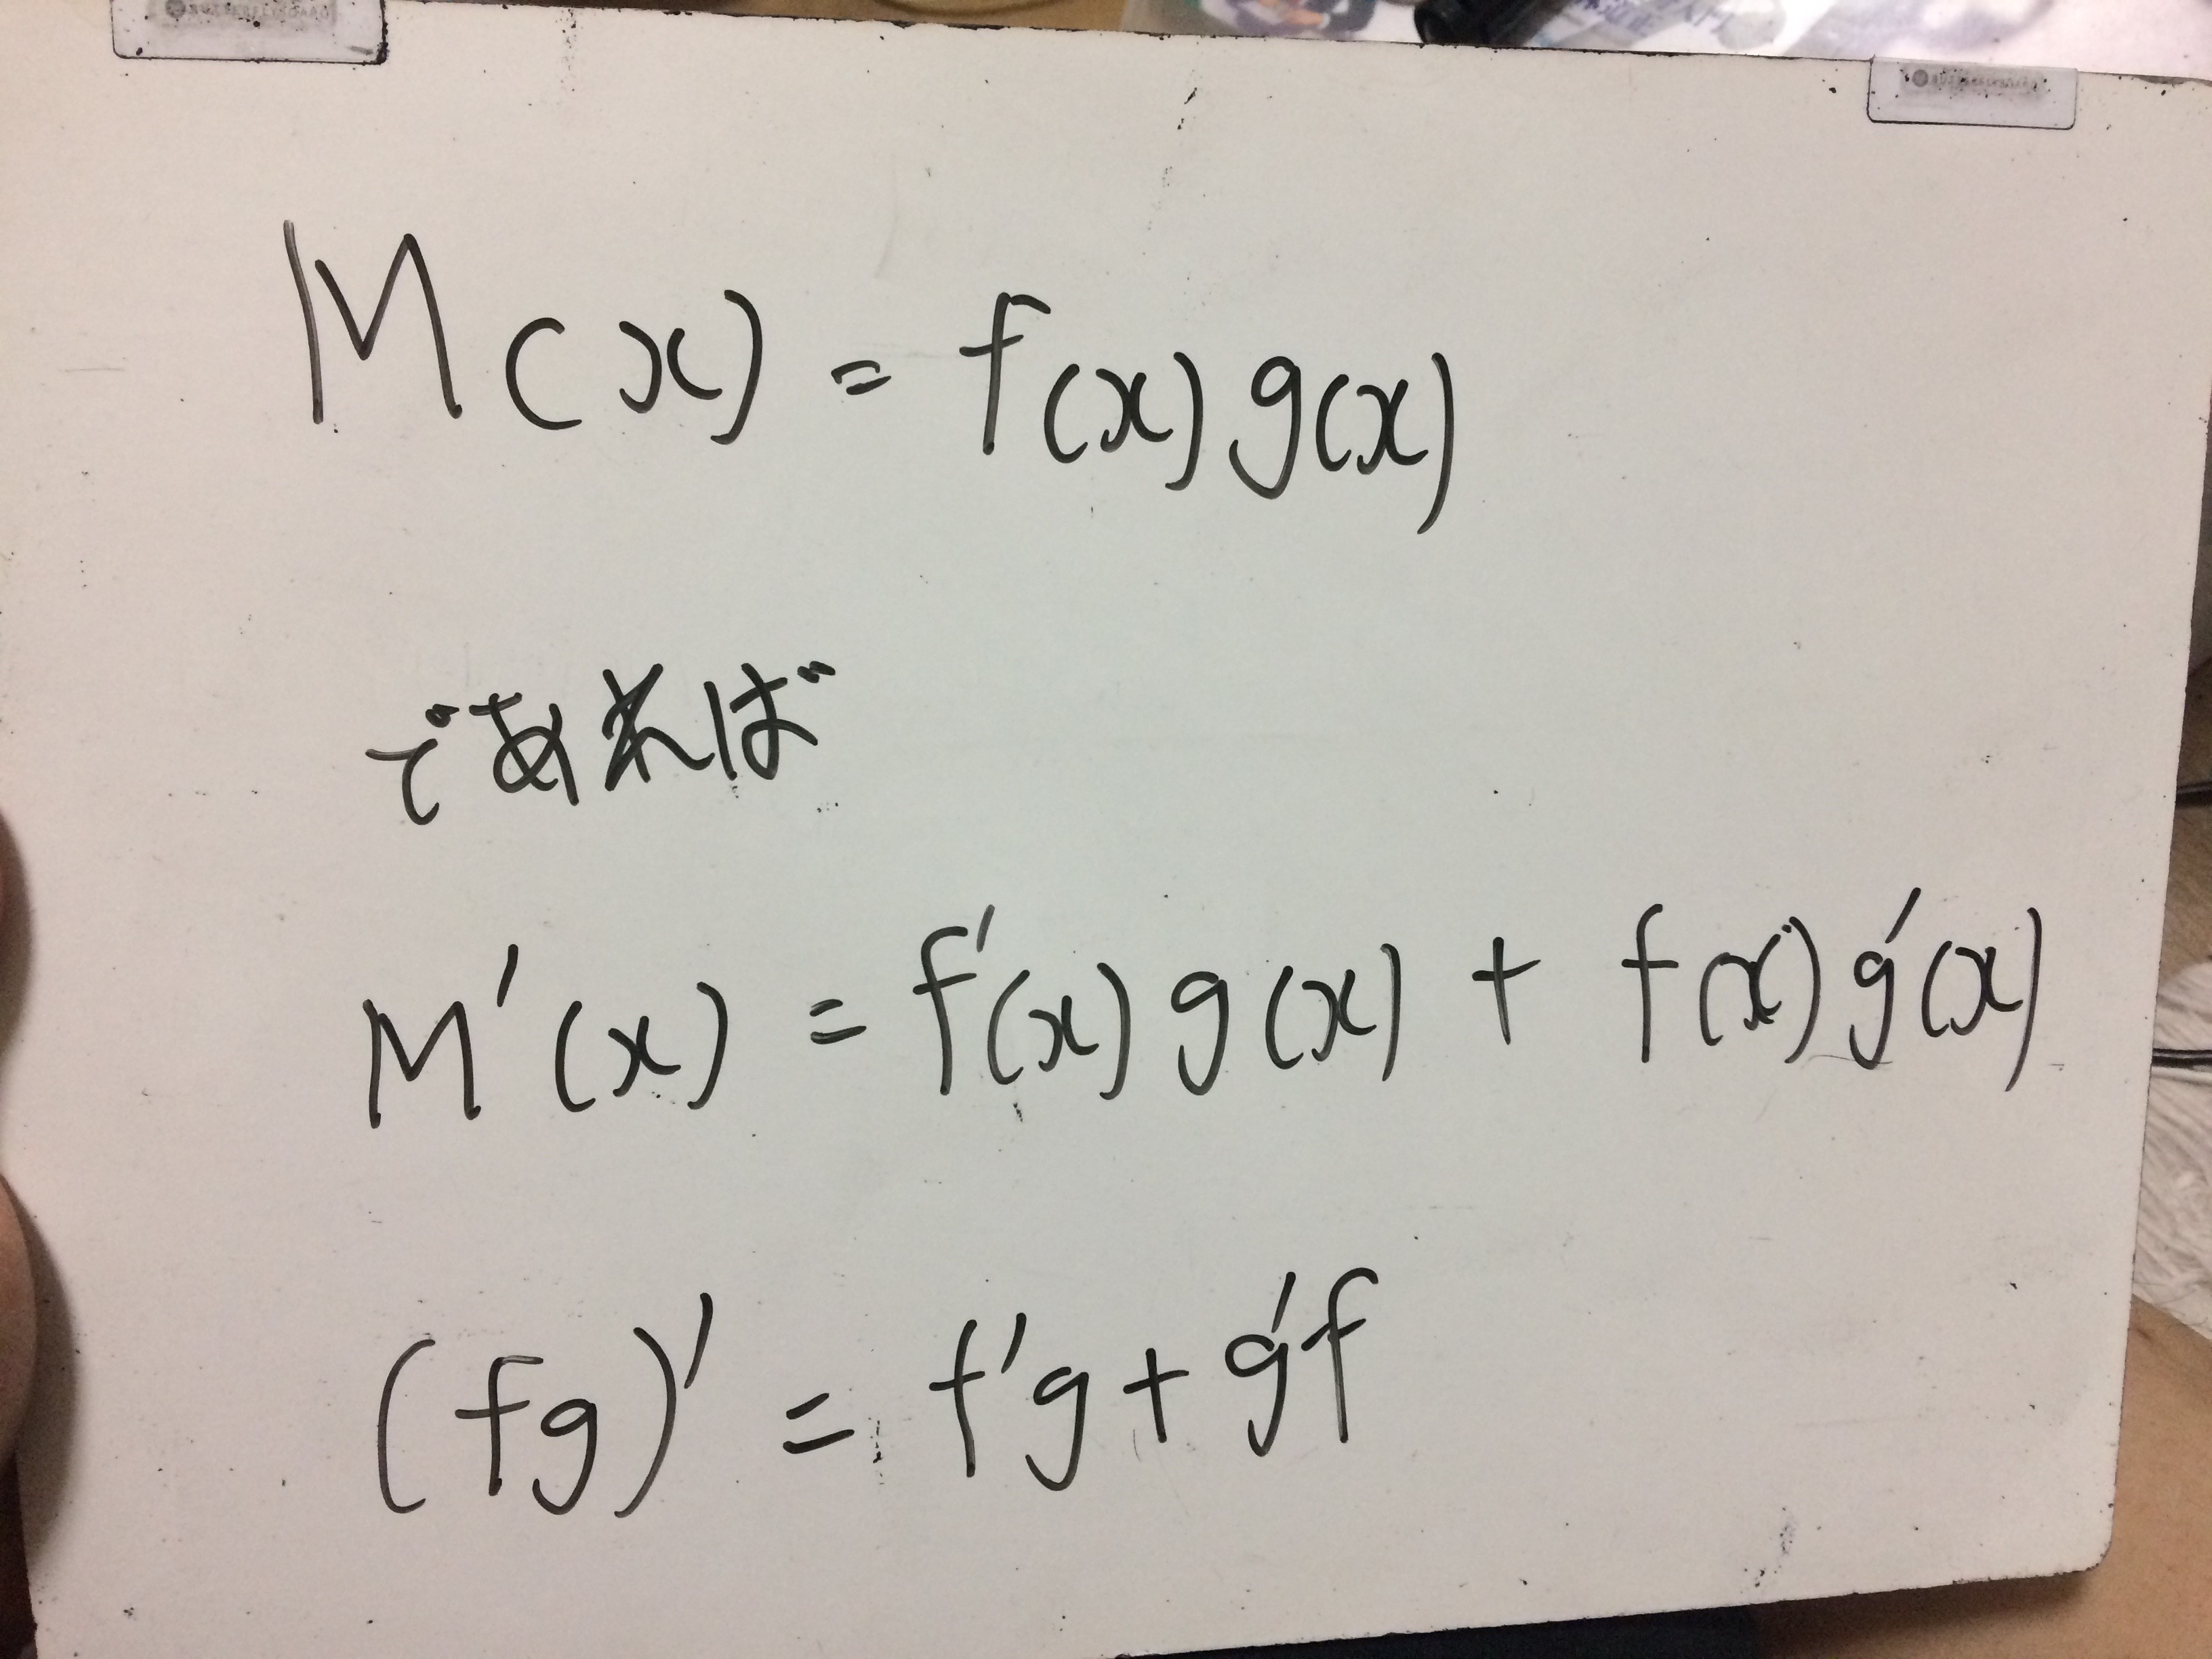 M(x) = f(x)g(x)
であれば、
M'(x) = f'(x)g(x) + f(x)g'(x)
(fg)' = f'g + g'f